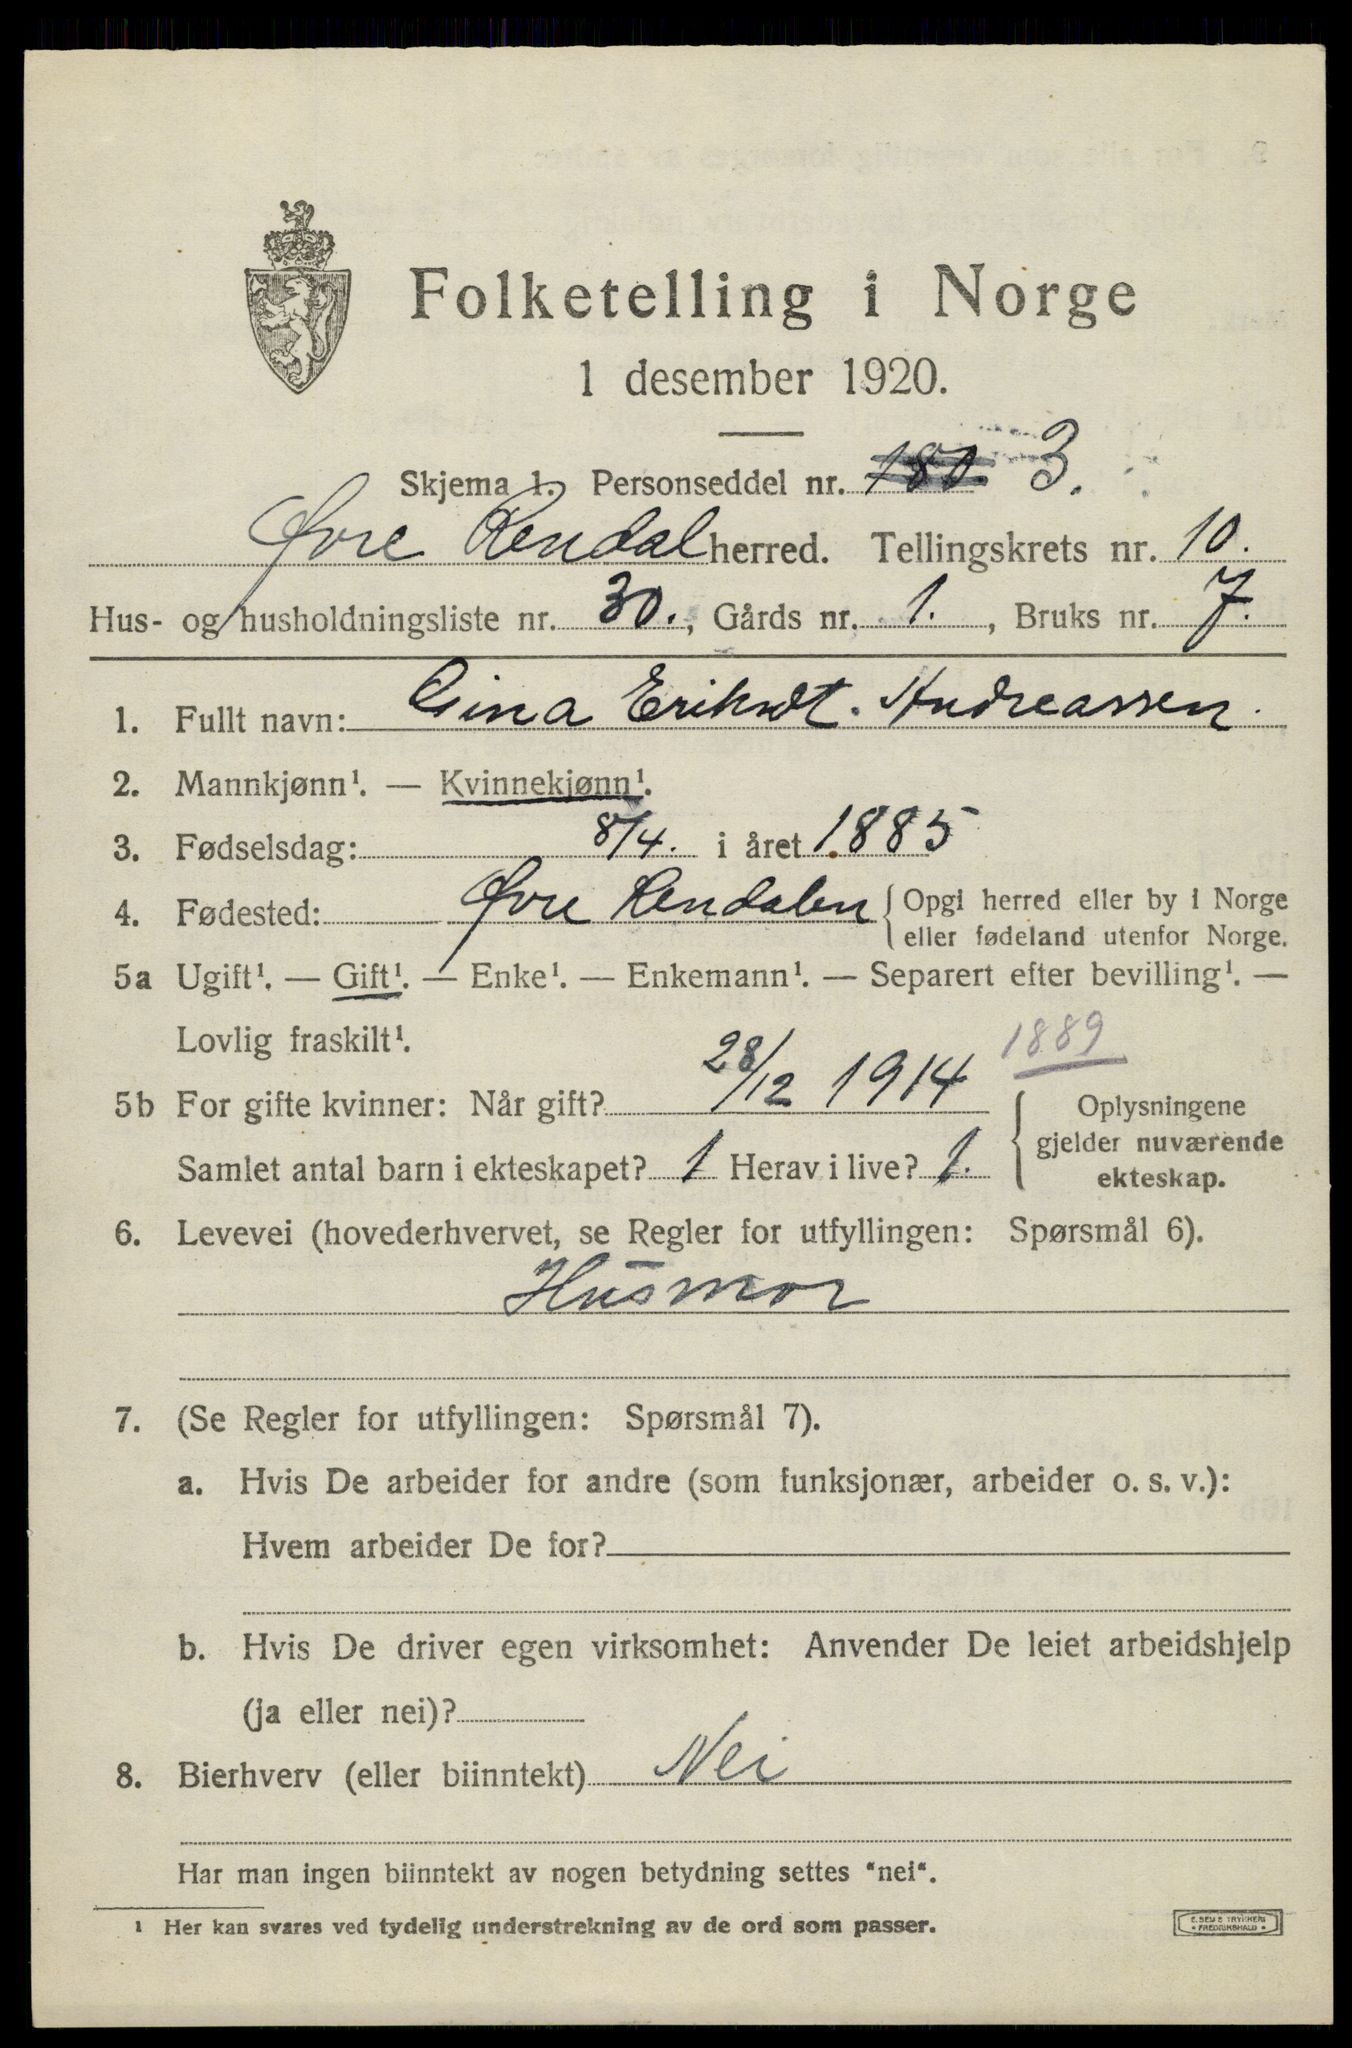 Folketelling i Norge
1 desember 1920.
Skjema 1. Personseddel nr. 181 3.
Øvre Rendal herred. Tellingskrets nr. 10.
Hus- og husholdningsliste nr. 30., Gårds nr. 1., Bruks nr. 7.
1. Fullt navn: Gina Eriksdt. Andreassen.
2. Mannkjønn¹. — Kvinnekjønn¹.
3. Fødselsdag: 8/4. i året 1885
4. Fødested: Øvre Rendalen { Opgi herred eller by i Norge
eller fødeland utenfor Norge.
5a Ugift¹. — Gift¹. — Enke¹. — Enkemann¹. — Separert efter bevilling¹. —
Lovlig fraskilt¹.
1889
5b For gifte kvinner: Når gift? 28/12 1914 { Oplysningene
gjelder nuværende
Samlet antal barn i ekteskapet? 1 Herav i live? 1.
ekteskap.
6. Levevei (hovederhvervet, se Regler for utfyllingen: Spørsmål 6).
Husmor
7. (Se Regler for utfyllingen: Spørsmål 7).
a. Hvis De arbeider for andre (som funksjonær, arbeider o. s. v.):
Hvem arbeider De for?
b. Hvis De driver egen virksomhet: Anvender De leiet arbeidshjelp
(ja eller nei)?
8. Bierhverv (eller biinntekt) Nei
Har man ingen biinntekt av nogen betydning settes "nei".
¹ Her kan svares ved tydelig understrekning av de ord som passer.
E. SEM'S TRYKKERI
• FREDRIKSHALD •